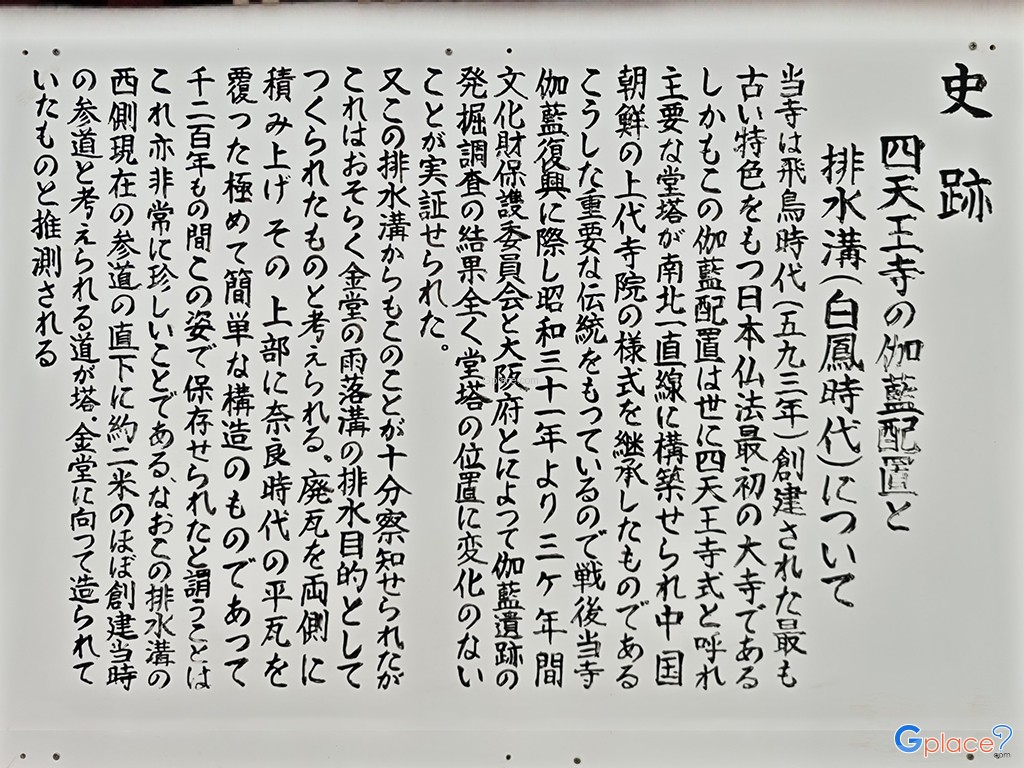 史跡
四天王寺の伽藍配置と
排水溝(白鳳時代)について
当寺は飛鳥時代(五九三年)創建された最も
古い特色をもつ日本仏法最初の大寺である
しかもこの伽藍配置は世に四天王寺式と呼れ
主要な堂塔が南北一直線に構築せられ中国
朝鮮の上代寺院の様式を継承したものである
こうした重要な伝統をもっているので戦後当寺
伽藍復興に際し昭和三十一年より三ヶ年間
文化財保護委員会と大阪府とによつて伽藍遺跡の
発掘調査の結果全く堂塔の位置に変化のない
ことが実証せられた。
又この排水溝からもこのことが十分察知せられたが
これはおそらく金堂の雨落溝の排水目的として
つくられたものと考えられる。廃瓦を両側に
積み上げその上部に奈良時代の平瓦を
覆った極めて簡単な構造のものであって
千二百年もの間この姿で保存せられたと謂うことは
これ亦非常に珍しいことである、なおこの排水溝の
西側現在の参道の直下に約二米のほぼ創建当時
の参道と考えられる道が塔、金堂に向って造られて
いたものと推測される
Gplace
.com